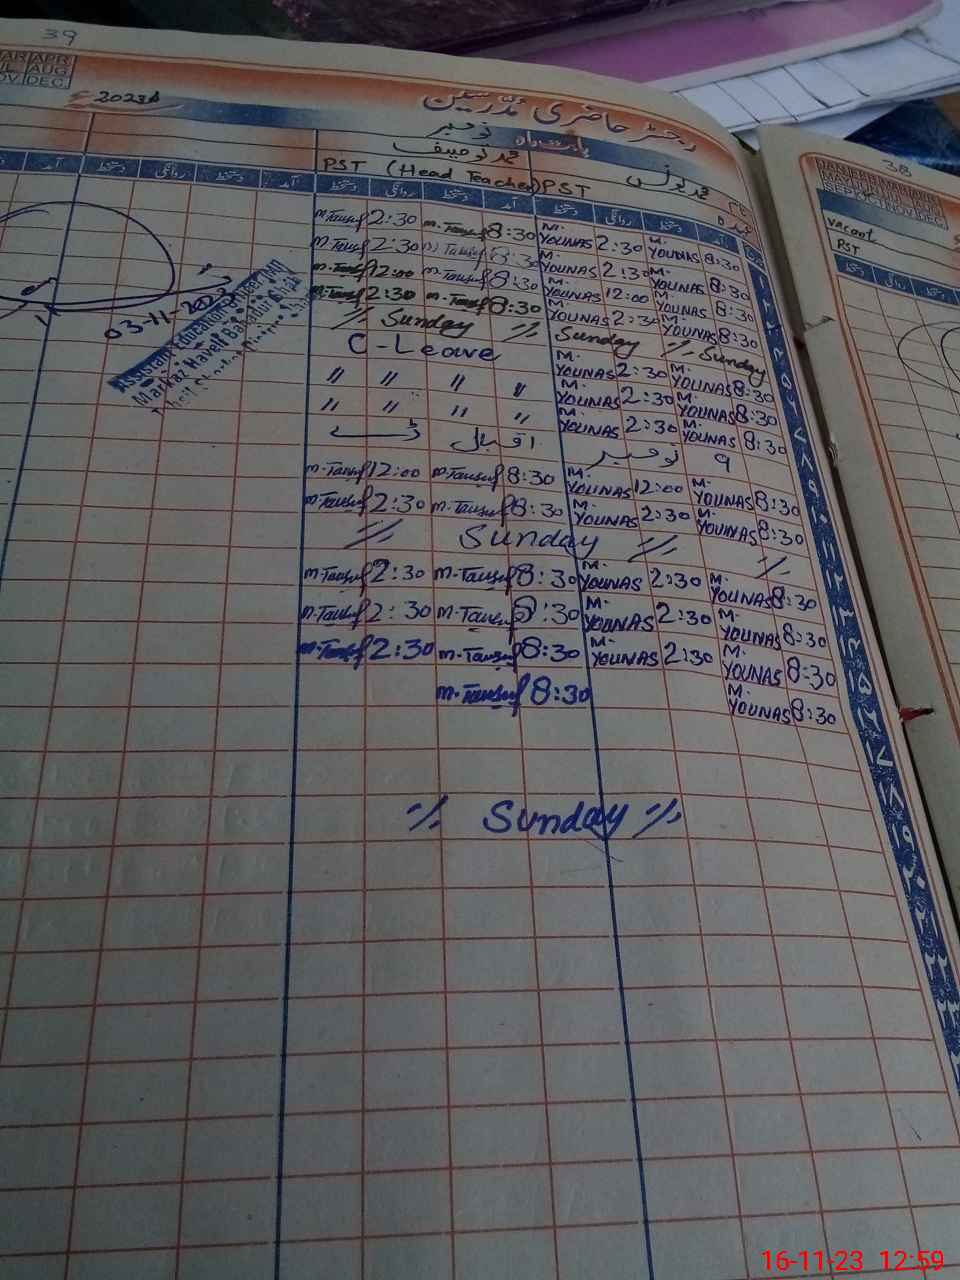 39
APR
AUG
DEC
2023ء
رجسٹر حاضری مدرسین
بابت ماہ نومبر
محمد توصیف
محمد یونس
PST (Head Teacher) PST
دستخط روانگی دستخط آمد دستخط روانگی دستخط آمد
M-Tausif 2:30 M-Tausif 8:30 M. YOUNAS 2:30 M. YOUNAS 8:30
M-Tausif 2:30 M-Tausif 8:30 M. YOUNAS 2:30 M. YOUNAS 8:30
M-Tausif 12:00 M-Tausif 8:30 M. YOUNAS 12:00 M. YOUNAS 8:30
M-Tausif 2:30 M-Tausif 8:30 M. YOUNAS 2:30 M. YOUNAS 8:30
// Sunday // Sunday // Sunday
C-Leave M. YOUNAS 2:30 M. YOUNAS 8:30
// // // // M. YOUNAS 2:30 M. YOUNAS 8:30
// // // // M. YOUNAS 2:30 M. YOUNAS 8:30
۹ نومبر اقبال ڈے
M-Tausif 12:00 M-Tausif 8:30 M. YOUNAS 12:00 M. YOUNAS 8:30
M-Tausif 2:30 M-Tausif 8:30 M. YOUNAS 2:30 M. YOUNAS 8:30
// Sunday // //
M-Tausif 2:30 M-Tausif 8:30 M. YOUNAS 2:30 M. YOUNAS 8:30
M-Tausif 2:30 M-Tausif 8:30 M. YOUNAS 2:30 M. YOUNAS 8:30
M-Tausif 2:30 M-Tausif 8:30 M. YOUNAS 2:30 M. YOUNAS 8:30
M-Tausif 8:30 M. YOUNAS 8:30
// Sunday //
03-11-2023
Assistant Education Officer
Markaz Haveli Bahadur Shah
38
vacant
PST
16-11-23 12:59